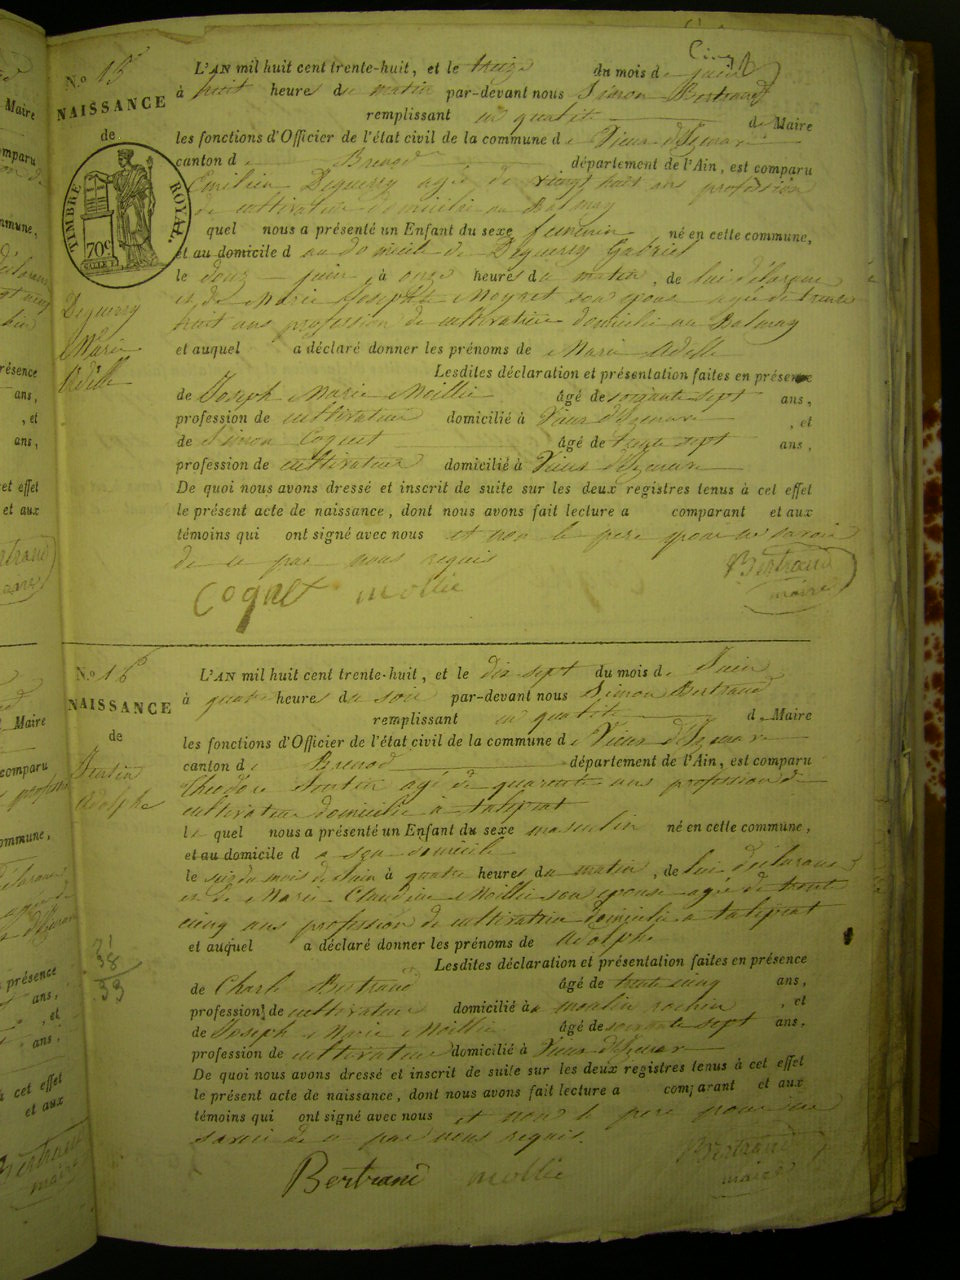 N.o 15
NAISSANCE
de
TIMBRE ROYAL.
70c
Deguerry
Marie
Adelle
L'AN mil huit cent trente-huit, et le treize du mois de juin
à huit heures du matin par-devant nous Simon Bertrand
remplissant en qualité de Maire
les fonctions d'Officier de l'état civil de la commune de Vieux d'Izenave
canton de Brenod département de l'Ain, est comparu
Emilien Deguerry agé de vingt huit ans profession
de cultivateur domicilié au Balmay
quel nous a présenté un Enfant du sexe feminin né en cette commune,
et au domicile d au domicile de Deguerry Gabriel
le douze juin à onze heures du matin, de lui déclarant
et de Marie Josephte Moyret son épouse agée de trente
huit ans profession de cultivatrice domicilié au Balmay
et auquel a déclaré donner les prénoms de Marie Adelle
Lesdites déclaration et présentation faites en présence
de Joseph Marie Moillie âgé de soixante sept ans,
profession de cultivateur domicilié à Vieux d'Izenave, et
de Simon Cognet âgé de trente sept ans,
profession de cultivateur domicilié à Vieux d'Izenave
De quoi nous avons dressé et inscrit de suite sur les deux registres tenus à cet effet
le présent acte de naissance, dont nous avons fait lecture a comparant et aux
témoins qui ont signé avec nous et non le pere pour ne savoir
de ce par nous requis
Cognet mollie Bertrand
maire
N.o 16
NAISSANCE
de
Adolphe
L'AN mil huit cent trente-huit, et le dix sept du mois de Juin
à quatre heures du soir par-devant nous Simon Bertrand
remplissant en qualité de Maire
les fonctions d'Officier de l'état civil de la commune de Vieux d'Izenave
canton de Brenod département de l'Ain, est comparu
Théodore agé de quarante ans profession de
cultivateur domicilié a talipiat
le quel nous a présenté un Enfant du sexe masculin né en cette commune,
et au domicile d a son domicile
le seize du mois de Juin à quatre heures du matin, de lui déclarant
et de Marie Claudine Moillie son épouse agée de trente
cinq ans profession de cultivatrice domicilié a talipiat
et auquel a déclaré donner les prénoms de Adolphe
Lesdites déclaration et présentation faites en présence
de Charle Bertrand âgé de trente cinq ans,
profession de cultivateur domicilié à moulin rochen, et
de Joseph Marie Moillie âgé de soixante sept ans,
profession de cultivateur domicilié à Vieux d'Izenave
De quoi nous avons dressé et inscrit de suite sur les deux registres tenus à cet effet
le présent acte de naissance, dont nous avons fait lecture a comparant et aux
témoins qui ont signé avec nous et non le pere pour ne
savoir de ce par nous requis.
Bertrand mollie Bertrand
maire